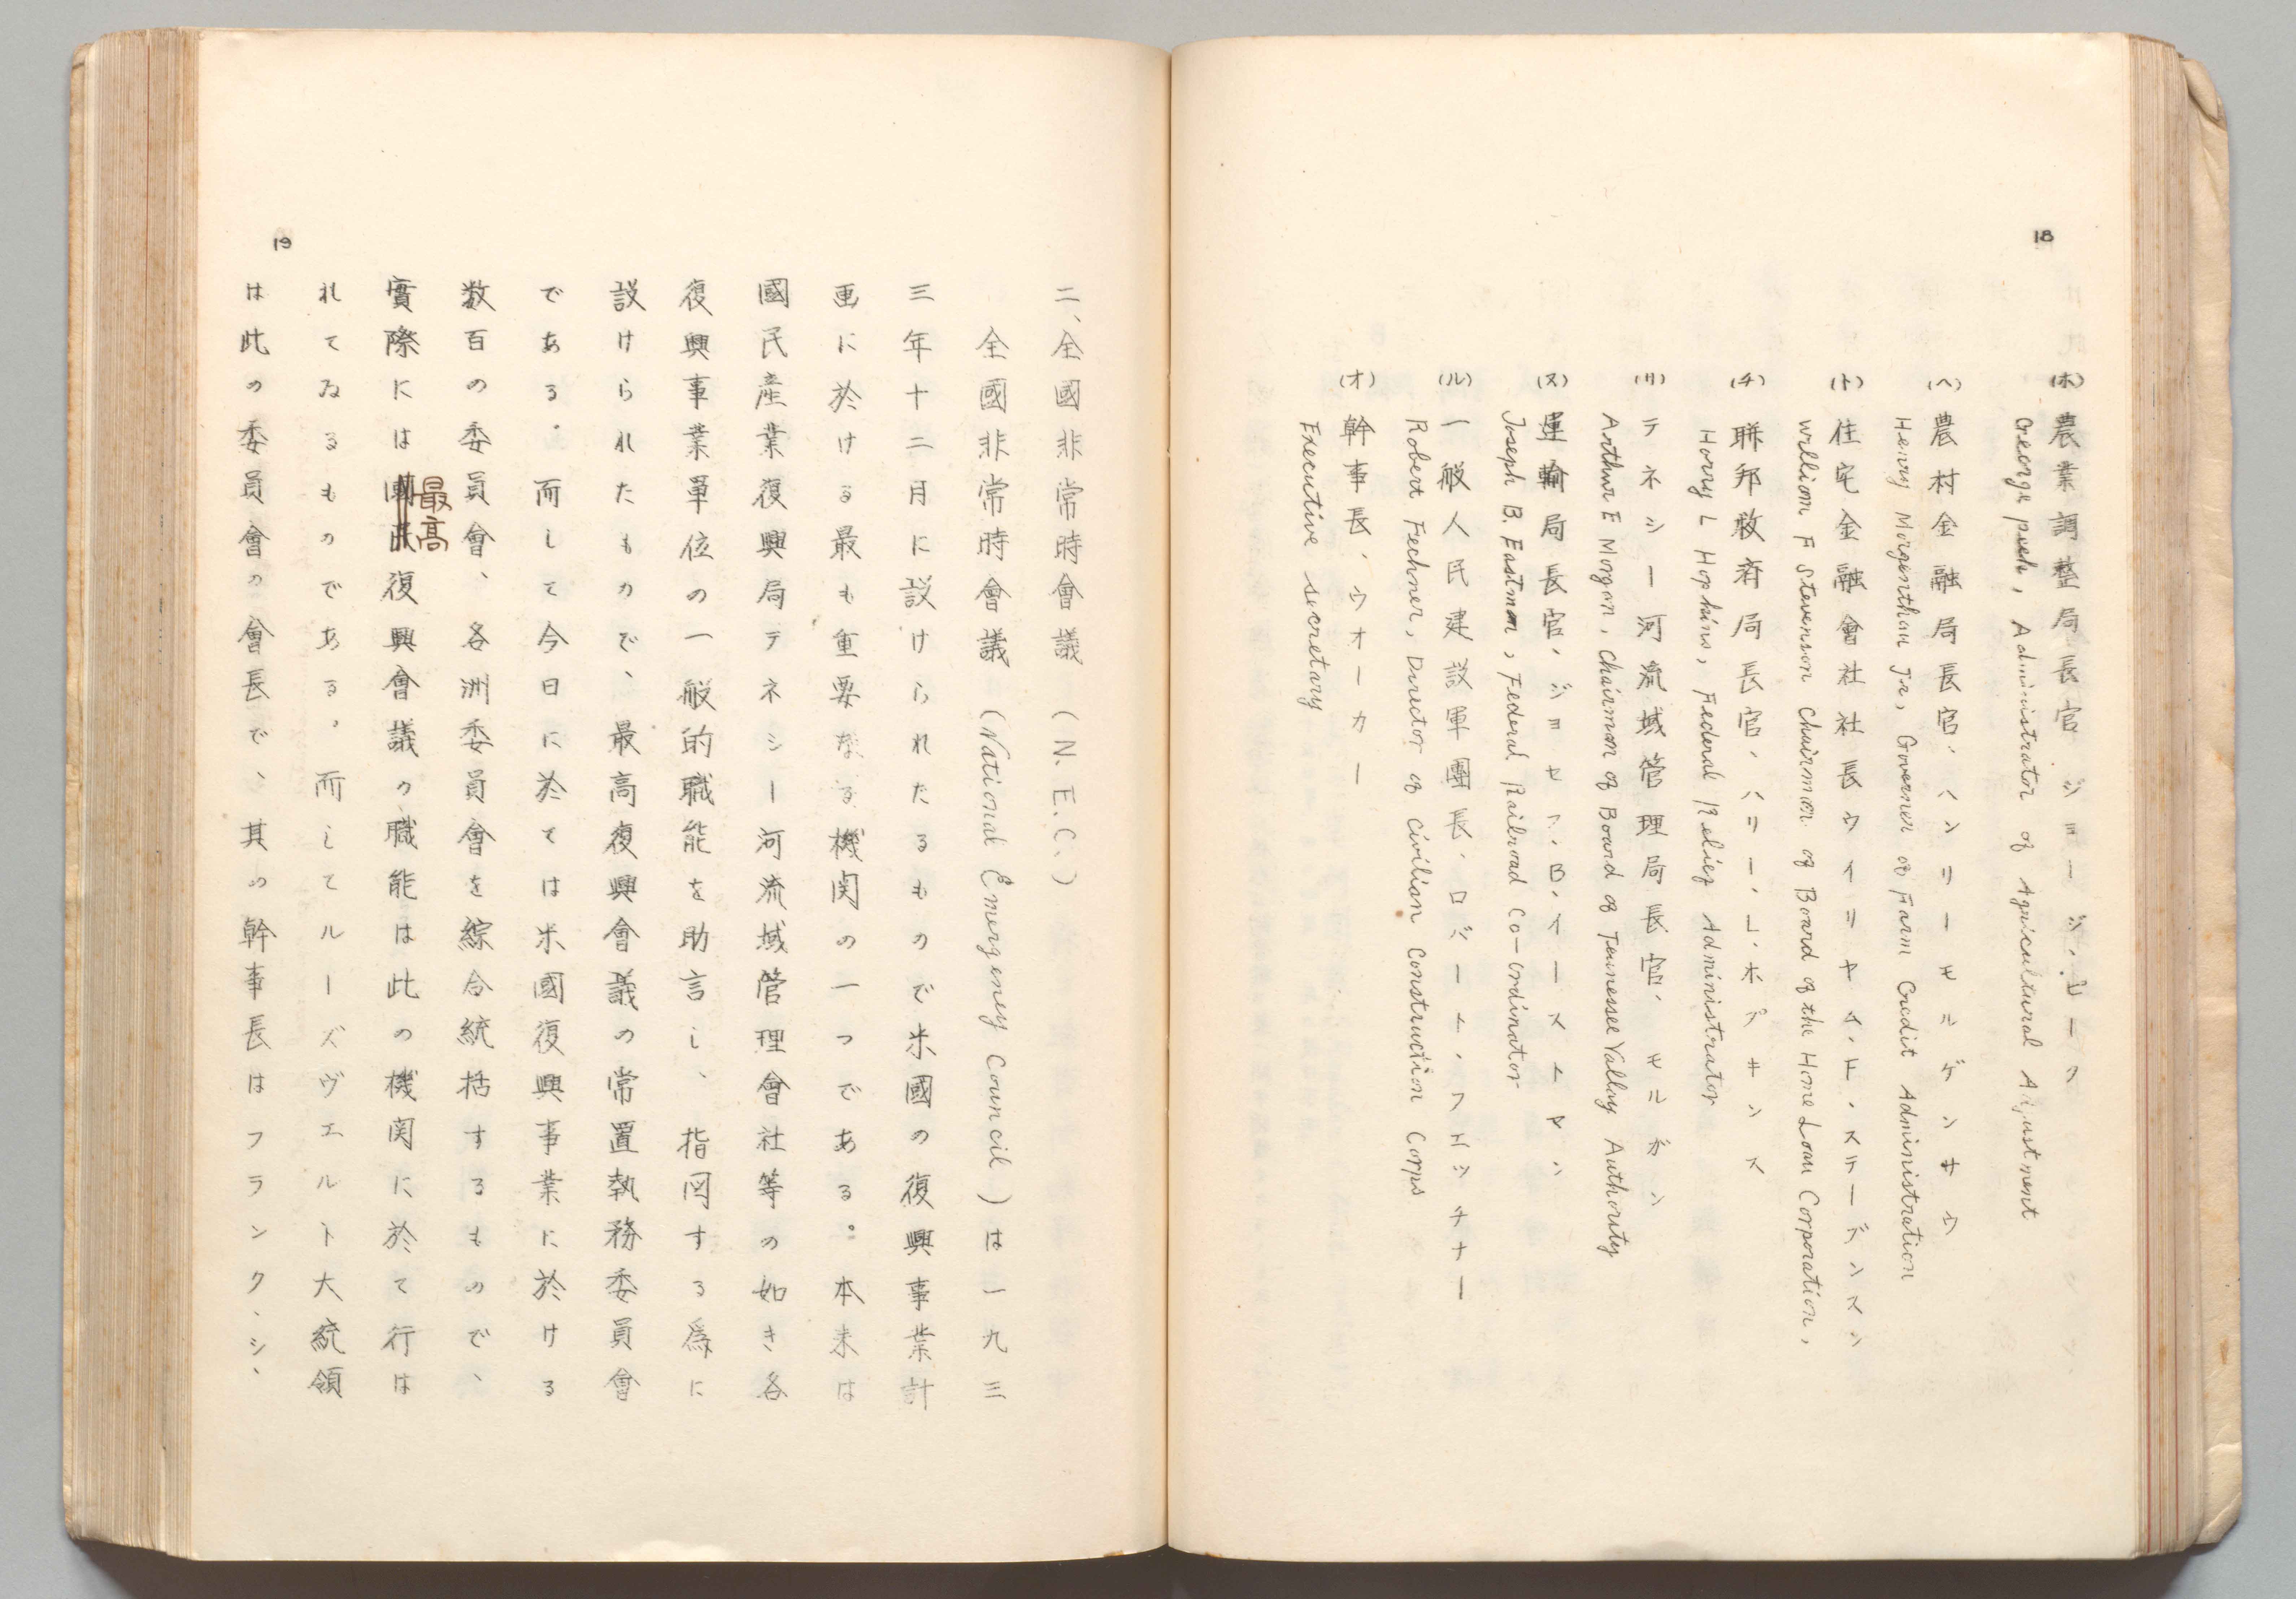 18
(ホ)農業調整局長官 ジョージ・ピーク
George peek, Administrator of Agricultural Adjustment
(ヘ)農村金融局長官、ヘンリーモルゲンサウ
Henry Morgenthau Jr, Governer of Farm Credit Administration
(ト)住宅金融會社社長ウイリヤム・F・ステーヴンスン
William F Stevenson Chairman of Board of the Home Loan Corporation,
(チ)聯邦救済局長官、ハリー・L・ホプキンス
Harry L Hopkins, Federal Relief Administrator
(リ)テネシー河流域管理局長官、モルガン
Arthur E Morgan, Chairman of Board of Tennessee Valley Authority
(ヌ)運輸局長官、ジョセフ・B・イーストマン
Joseph B. Eastman, Federal Railroad Co-ordinator
(ル)一般人民建設軍團長、ロバート・フエッチナー
Robert Fechner, Director of Civilian Construction Corps
(オ)幹事長、ウオーカー
Executive secretary
19
二、全國非常時會議(N.E.C.)
全國非常時會議(National Emergency Council)は一九三
三年十二月に設けられたるもので米國の復興事業計
画に於ける最も重要なる機関の一つである。本来は
國民産業復興局テネシー河流域管理會社等の如き各
復興事業單位の一般的職能を助言し、指図する為に
設けられたもので、最高復興會議の常置執務委員會
である。而して今日に於ては米國復興事業に於ける
数百の委員會、各洲委員會を綜合統括するもので、
實際には最高復興會議の職能は此の機関に於て行は
れてゐるものである。而してルーズヴエルト大統領
は此の委員會の會長で、其の幹事長はフランク、シ、